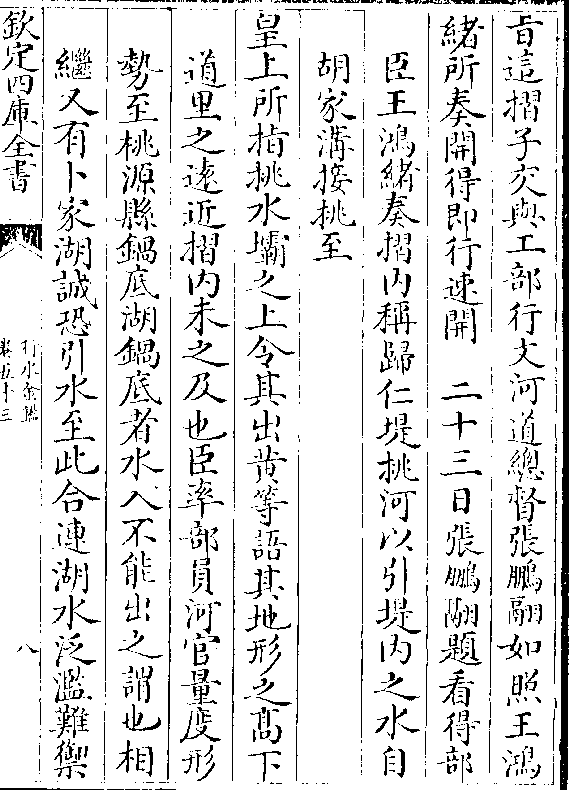 旨這摺子交與工部行文河道總督張鵬翮如照王鴻
緒所奏開得即行速開　二十三日張鵬翮題看得部
臣王鴻緒奏摺内稱歸仁堤挑河以引堤内之水自
胡家溝接挑至
皇上所指挑水壩之上令其出黄等語其地形之髙下
道里之逺近摺内未之及也臣率部員河官量度形
勢至桃源縣鍋底湖鍋底者水入不能出之謂也相
繼又有卜家湖誠恐引水至此合連湖水泛濫難禦
欽定四庫全書
行水金鑑
卷五十三
八